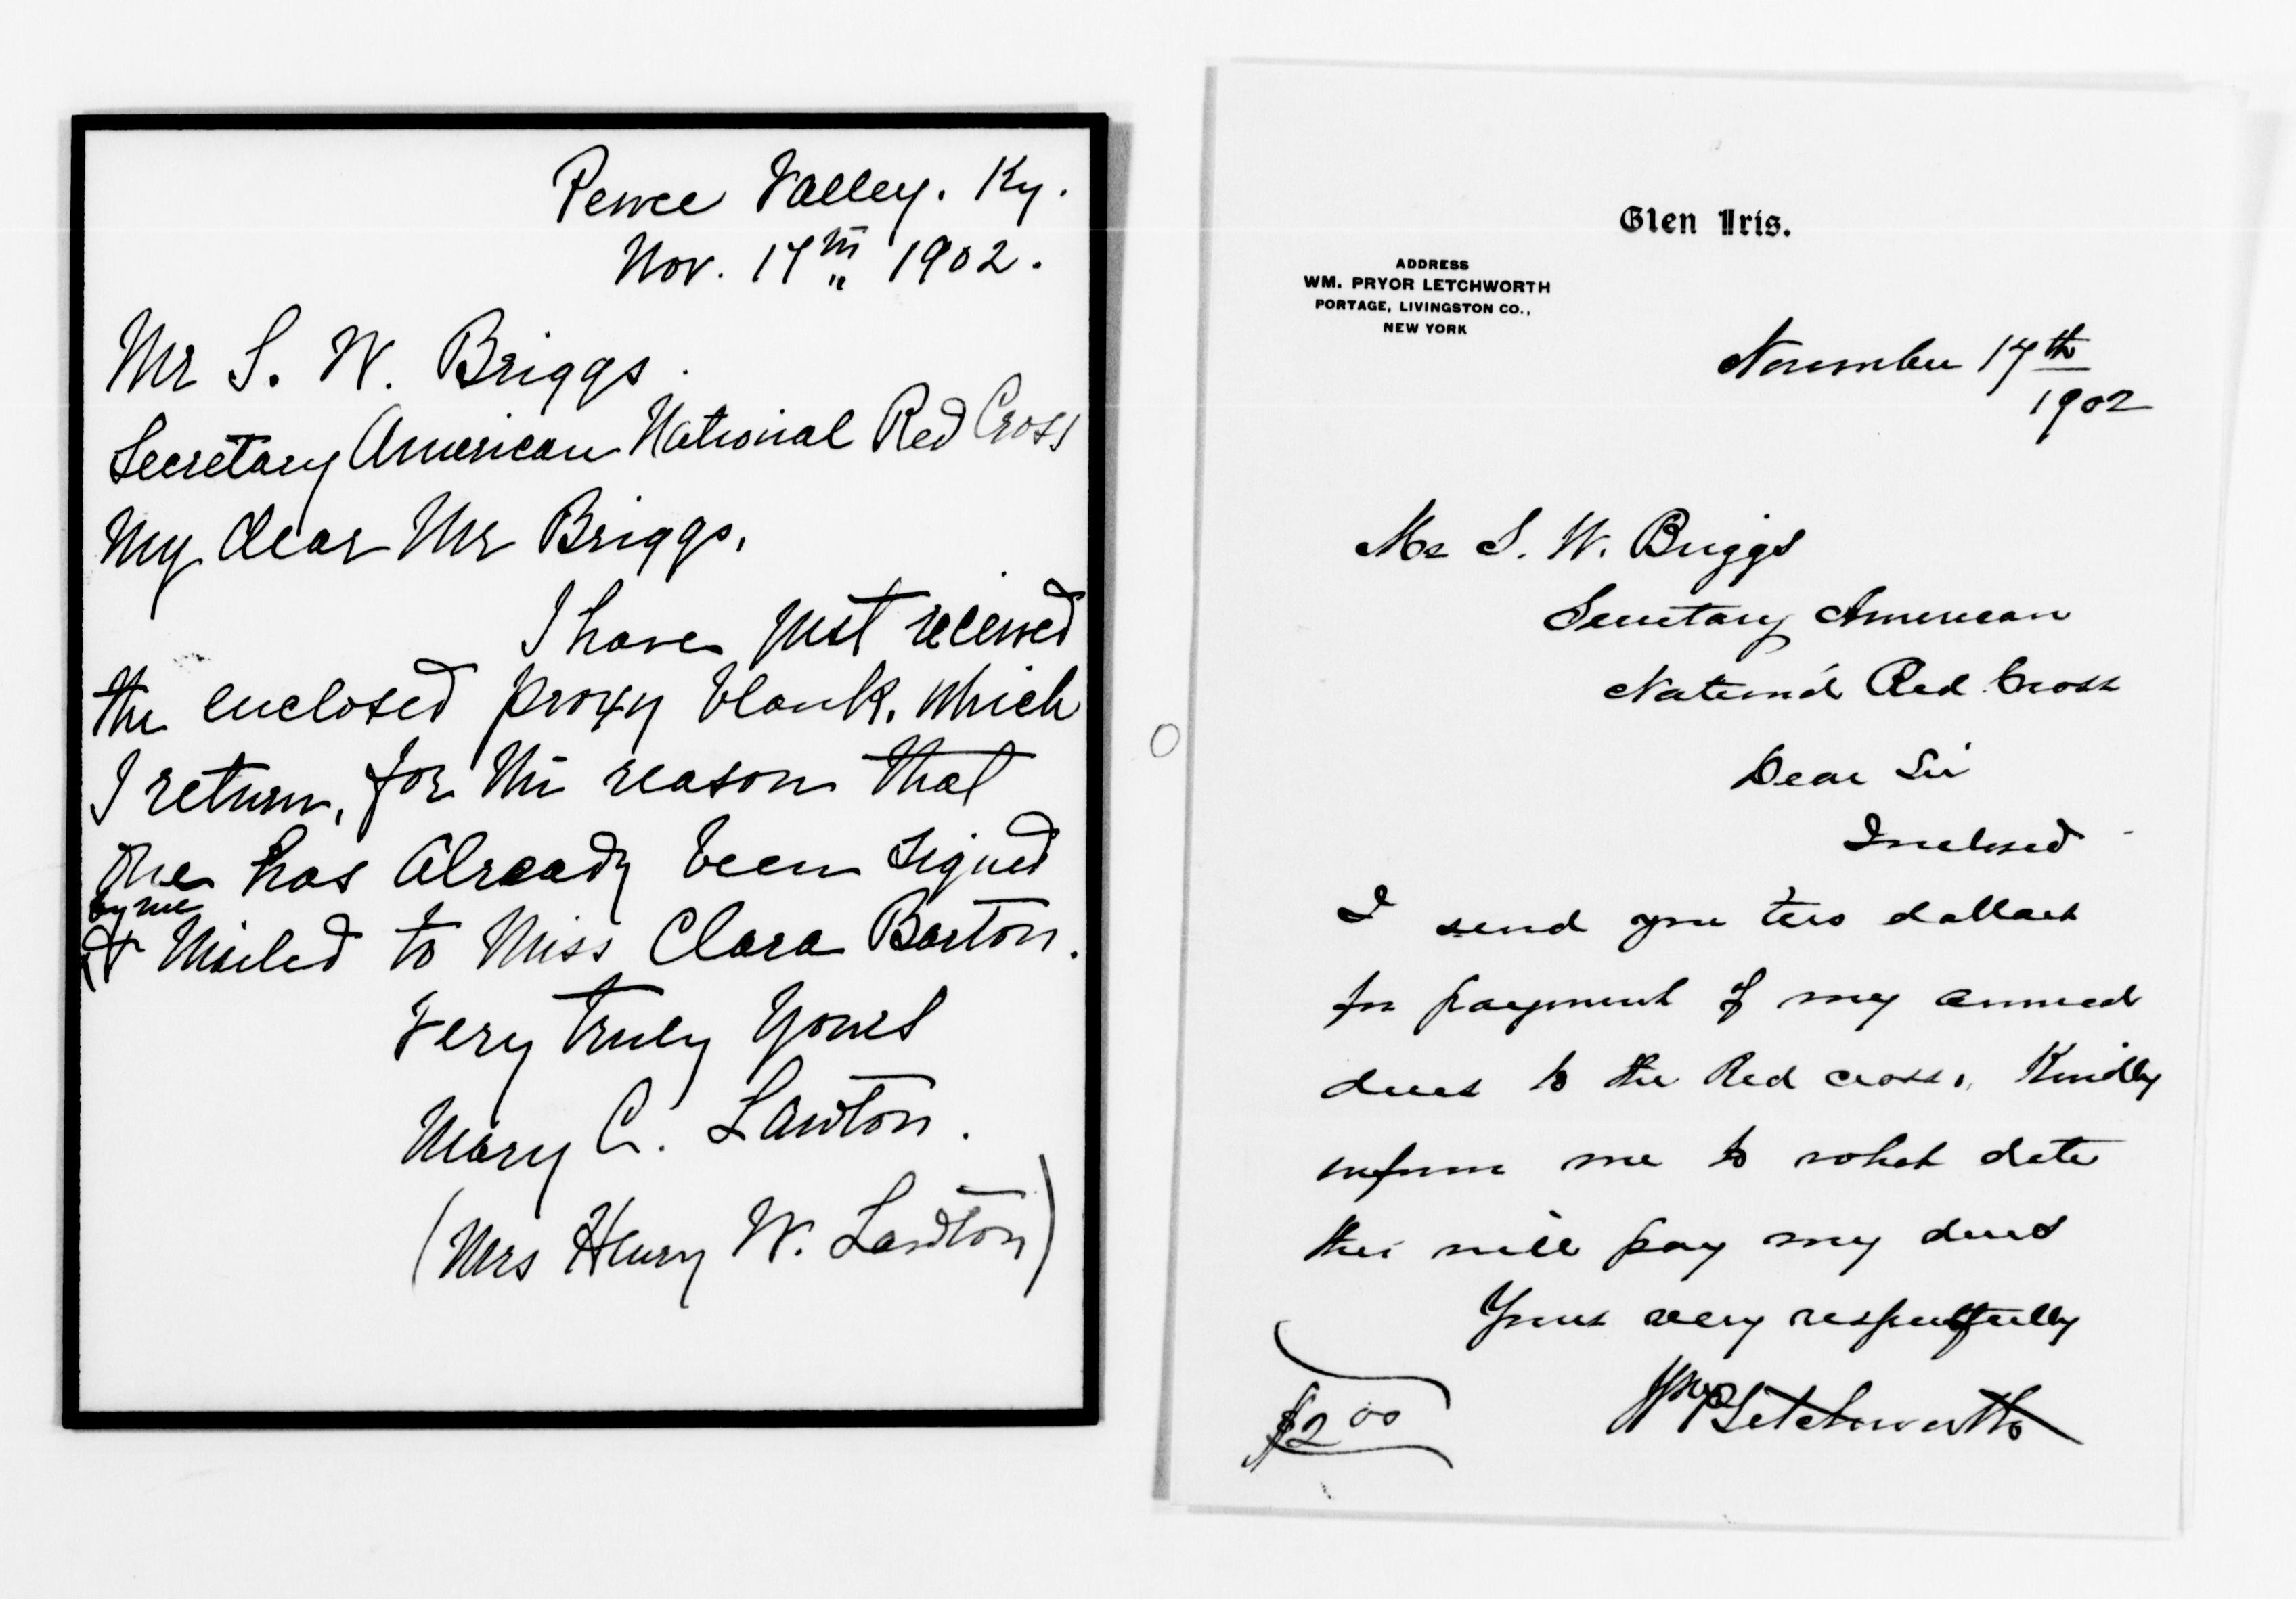 Pewee Valley. Ky.
Nov. 17th 1902.
Mr S. W. Briggs.
Secretary American National Red Cross
My dear Mr Briggs,
I have just received
the enclosed proxy blank, which
I return, for the reason that
one has already been signed
by me
& Mailed to Miss Clara Barton.
Very truly yours
Mary C. Lawton.
(Mrs Henry W. Lawton)
Glen Iris.
ADDRESS
WM. PRYOR LETCHWORTH
PORTAGE, LIVINGSTON CO.,
NEW YORK
November 17th
1902
Mr S. W. Briggs
Secretary American
National Red Cross
Dear Sir
Inclosed
I send you two dollars
in payment of my annual
dues to the Red cross. Kindly
inform me to what date
this will pay my dues
Yours very respectfully
Wm P Letchworth
$2 00